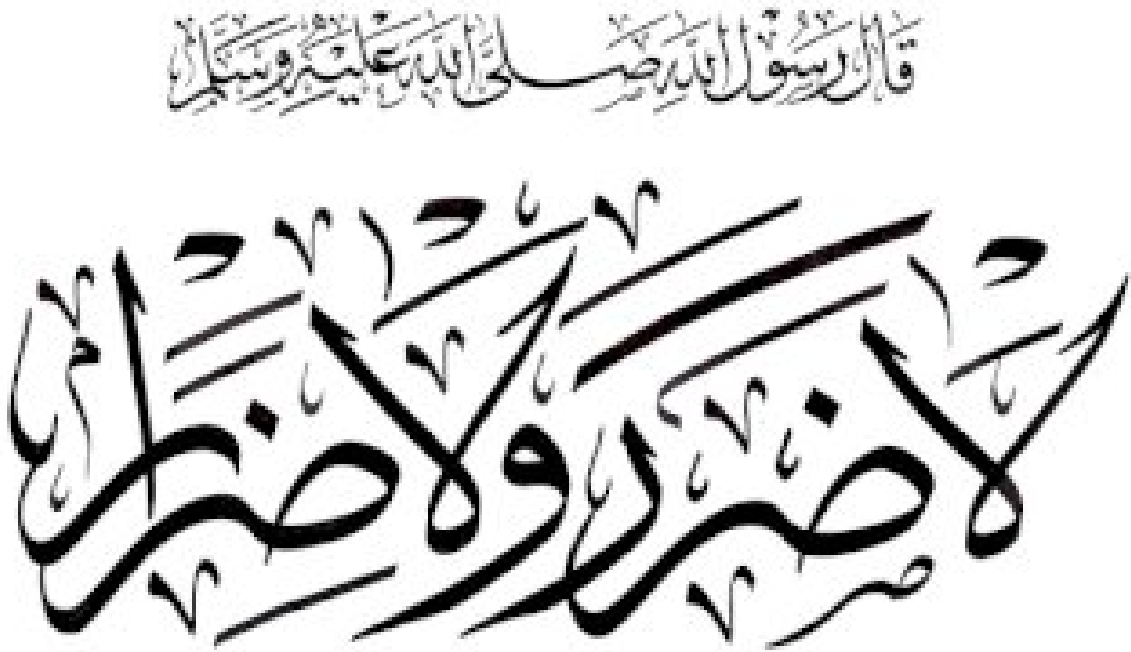 قال رسول الله صلى الله عليه وسلم
لا ضرر ولا ضرار